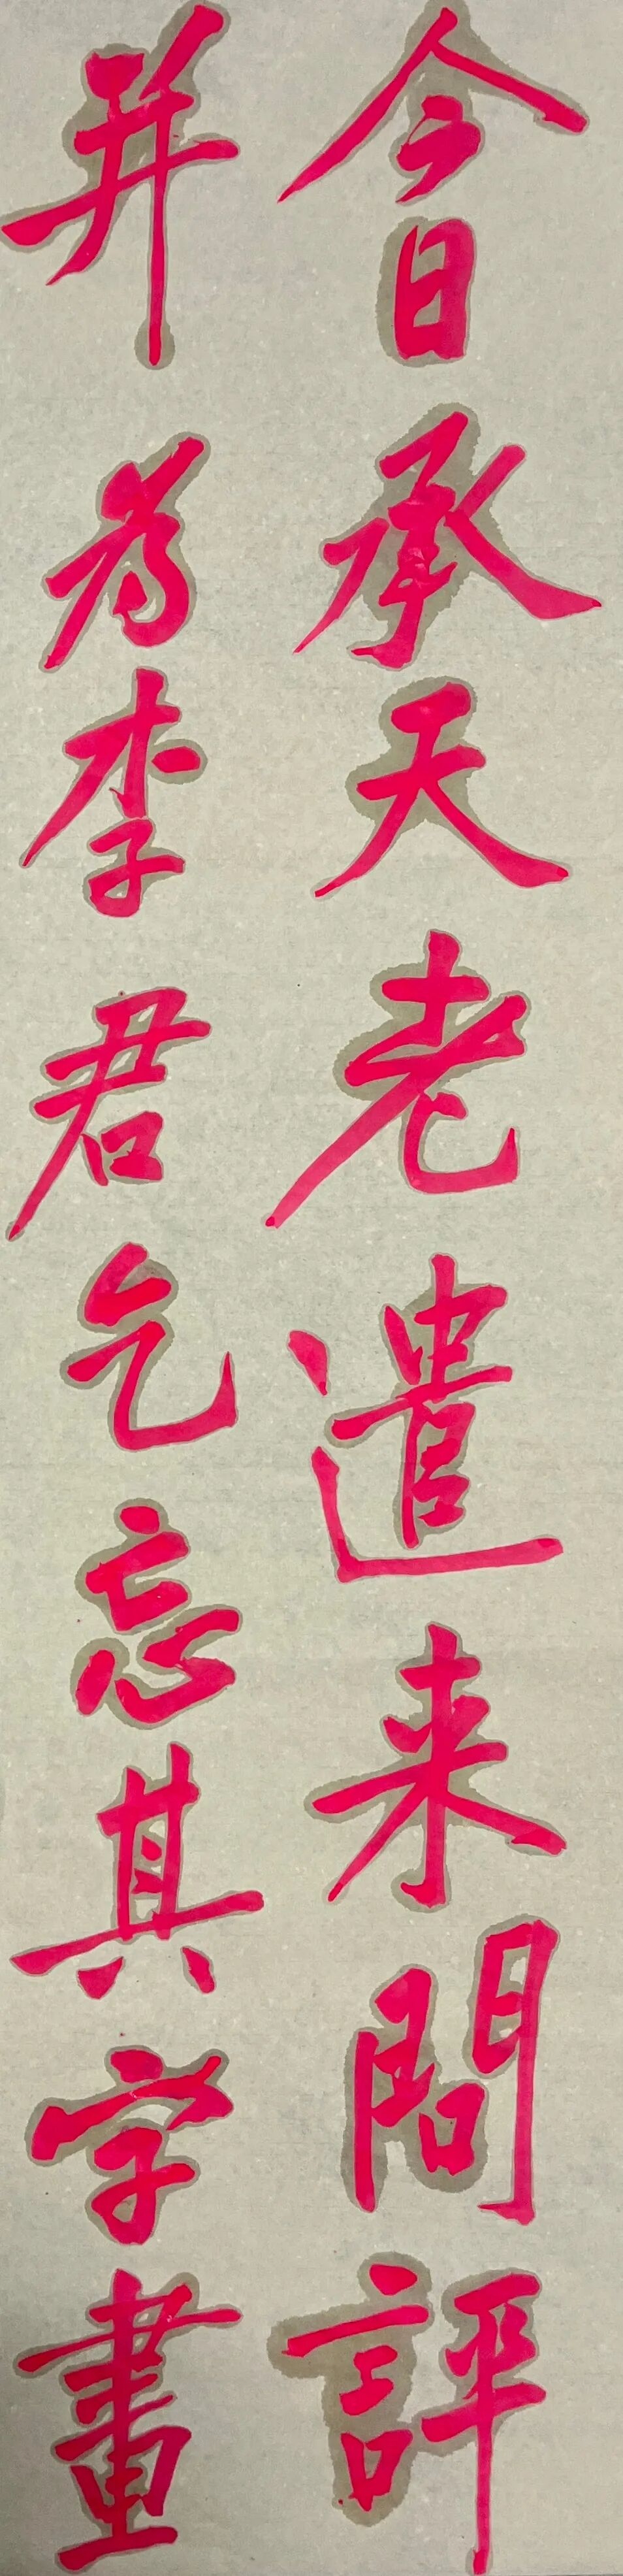 今日承天老遣来問評
并為李君乞忘其字畫